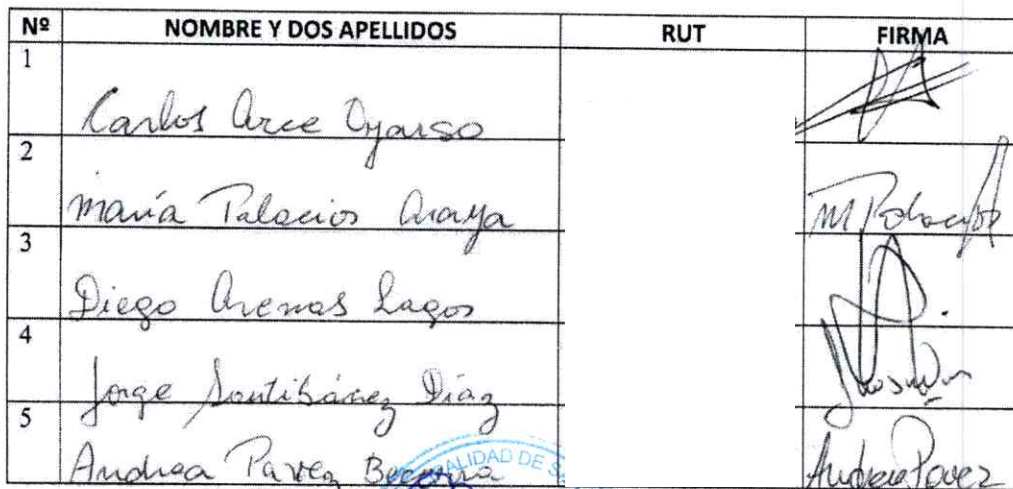 Nº NOMBRE Y DOS APELLIDOS RUT FIRMA
1 Carlos Arce Oyarso
2 María Palacios Araya M Palacios
3 Diego Arenas Lagos
4 Jorge Santibáñez Díaz
5 Andrea Pavez Becerra Andrea Pavez
ALIDAD DE